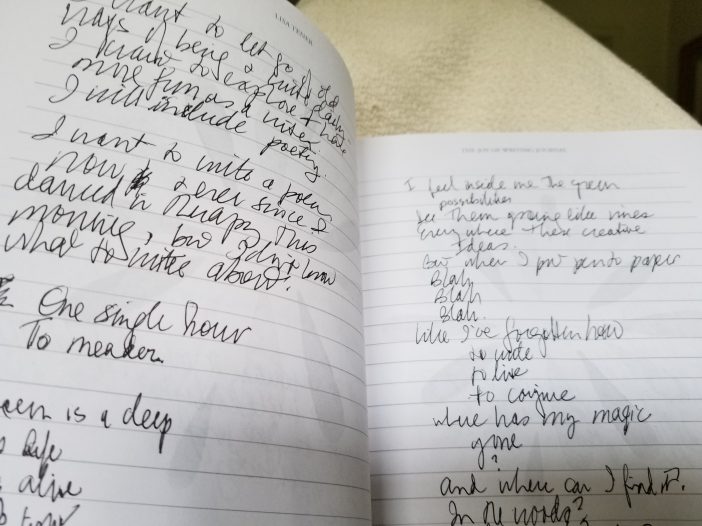 LISA TENER
I want to let go of old
ways of being a writer/teacher.
I want to explore & have
more fun as a writer.
I will include poetry.
I want to write a poem
now & ever since I
danced in therapy this
morning, but I don't know
what to write about.
One single hour
To meander.
green is a deep
life
alive
THE JOY OF WRITING JOURNAL
I feel inside me the green
possibilities
see them growing like vines
everywhere these creative
Ideas.
But when I put pen to paper
Blah
Blah
Blah.
Like I've forgotten how
to write
to live
to conjure
where has my magic
gone
?
and where can I find it?
In the words?